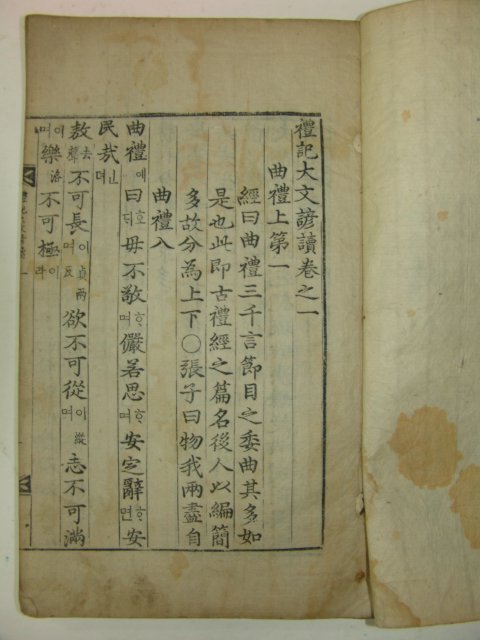 禮記大文諺讀卷之一
曲禮上第一
經曰曲禮三千言節目之委曲其多如
是也此即古禮經之篇名後人以編簡
多故分為上下〇張子曰物我兩盡自
曲禮入
曲禮예曰호ᄃᆡ毋不敬ᄒᆞ며儼若思ᄒᆞ며安定辭ᄒᆞ면安
民哉ᆫ뎌
敖去聲不可長이며 欲不可從이며縱 志不可滿
이며樂洛不可極이